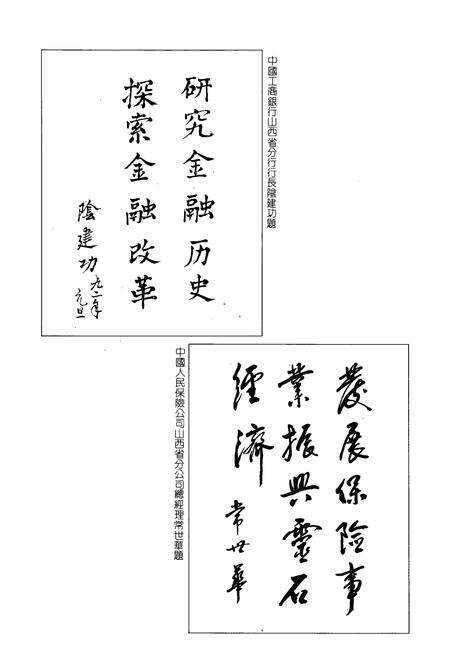 中國工商銀行山西省分行行長陰建功題
研究金融历史
探索金融改革
陰建功
九二年
元旦
發展保險事
業振興靈石
經濟
常世華
中國人民保險公司山西省分公司總經理常世華題